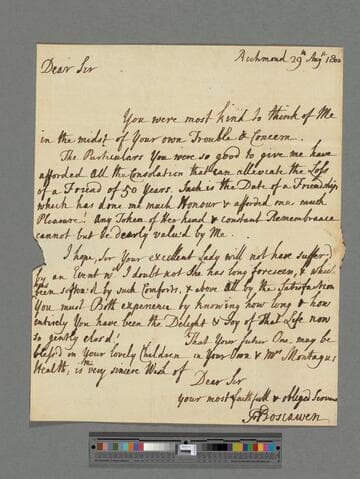 Richmond 29th Augst 1800
Dear Sir
You were most kind to think of Me
in the midst of Your own Trouble & Concern.
The Particulars You were so good to give me have
afforded All the Consolation that can alleviate the Loss
of a Friend of 50 Years. Such is the Date of a Friendship
which has done me much Honour & afforded me much
Pleasure! Any Token of Her kind & constant Remembrance
cannot but be dearly valued by Me.
I hope, Sir Your excellent Lady will not have suffer'd
by an Event wch I doubt not She has long foreseen, & which
has been soften'd by such Comforts, & above All by the Satisfaction
You must Both experience by knowing how long & how
entirely You have been the Delight & Joy of That Life now
so gently clos'd! That Your future One may be
bless'd in Your lovely Children in Your Own & Mrs Montagu's
Health, is the very sincere Wish of
Dear Sir
Your most faithfull & obliged Servant
F Boscawen